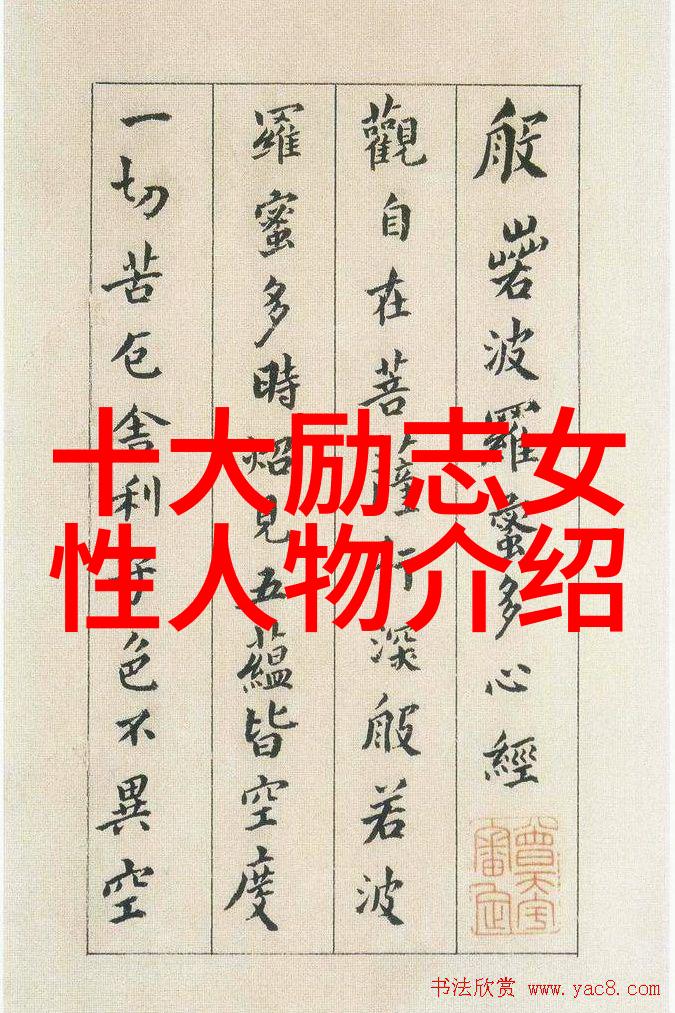 般若波羅蜜多心經
觀自在菩薩行深般若波
羅蜜多時炤見五蘊皆空度
一切苦厄舍利子色不異空
十大励志女
性人物介绍
书法欣赏 www.yac8.com